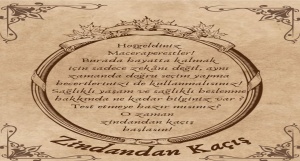 Hoşgeldiniz
Maceraperestler!
Burada hayatta kalmak
için sadece zekânı değil, aynı
zamanda doğru seçim yapma
becerilerinizi de kullanmalısınız!
Sağlıklı yaşam ve sağlıklı beslenme
hakkında ne kadar bilginiz var?
Test etmeye hazır mısınız?
O zaman
zindandan kaçış
başlasın!
Zindandan Kaçış